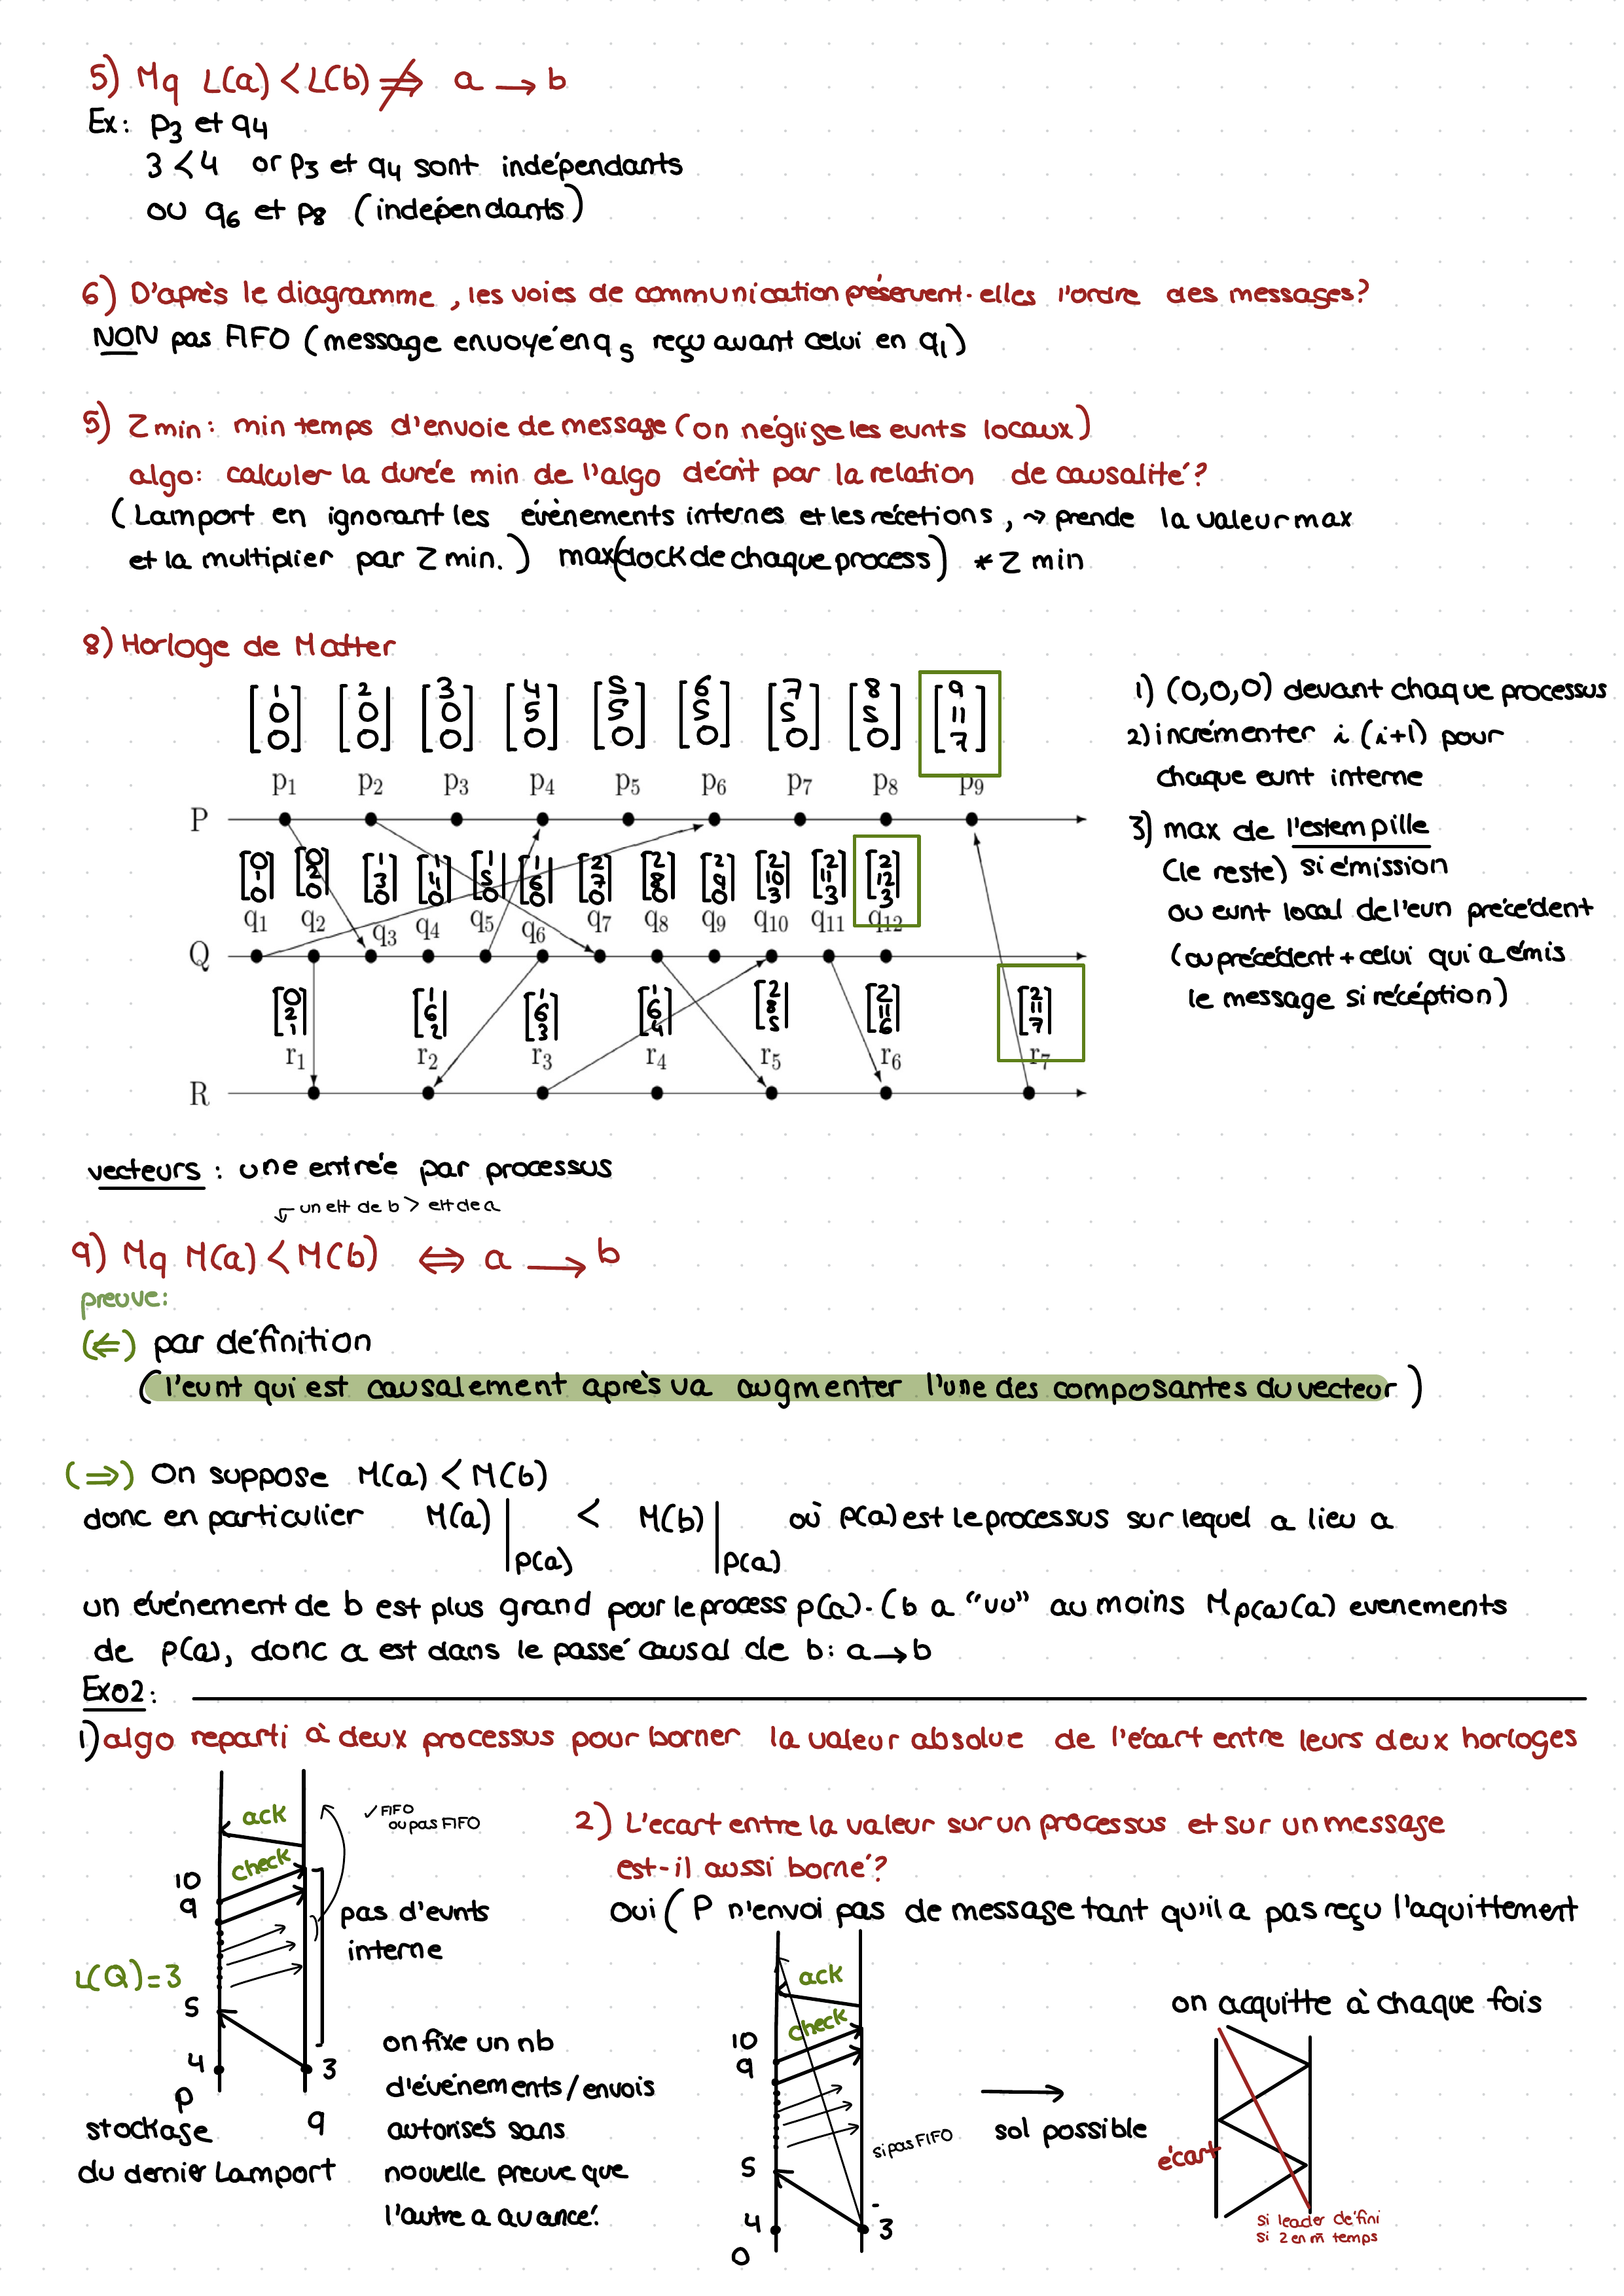 5) Mq L(a) < L(b) ⇏ a → b
Ex: p3 et q4
3 < 4 or p3 et q4 sont indépendants
ou q6 et p8 (indépendants)
6) D'après le diagramme, les voies de communication préservent-elles l'ordre des messages?
NON pas FIFO (message envoyé en q5 reçu avant celui en q1)
5) Zmin: min temps d'envoie de message (on néglise les evnts locaux)
algo: calculer la durée min de l'algo décrit par la relation de causalité?
(Lamport en ignorant les événements internes et les récetions, ⤳ prende la valeur max
et la multiplier par Z min.) max(clock de chaque process) * Z min
8) Horloge de Matter
[1 0 0] [2 0 0] [3 0 0] [4 5 0] [5 5 0] [6 5 0] [7 5 0] [8 5 0] [9 11 7]
p1 p2 p3 p4 p5 p6 p7 p8 p9
P
[0 1 0] [0 2 0] [1 3 0] [1 4 0] [1 5 0] [1 6 0] [2 7 0] [2 8 0] [2 9 0] [2 10 3] [2 11 3] [2 12 3]
q1 q2 q3 q4 q5 q6 q7 q8 q9 q10 q11 q12
Q
[0 2 1] [1 6 2] [1 6 3] [1 6 4] [2 8 5] [2 11 6] [2 11 7]
r1 r2 r3 r4 r5 r6 r7
R
1) (0,0,0) devant chaque processus
2) incrémenter i (i+1) pour
chaque evnt interne
3) max de l'estempille
(le reste) si émission
ou evnt local de l'evn précédent
(ou précédent + celui qui a émis
le message si récéption)
vecteurs : une entrée par processus
un elt de b > elt de a
9) Mq M(a) < M(b) ⇔ a → b
preuve:
(⇐) par définition
(l'evnt qui est causalement après va augmenter l'une des composantes du vecteur)
(⇒) On suppose M(a) < M(b)
donc en particulier M(a)|p(a) < M(b)|p(a) où p(a) est le processus sur lequel a lieu a
un événement de b est plus grand pour le process p(a). (b a "vu" au moins Mp(a)(a) evenements
de p(a), donc a est dans le passé causal de b: a → b
Exo2:
1) algo reparti à deux processus pour borner la valeur absolue de l'écart entre leurs deux horloges
ack
✓ FIFO
ou pas FIFO
check
10
9
pas d'evnts
interne
L(Q)=3
5
4
3
p
q
stockage
du dernier Lamport
on fixe un nb
d'événements/envois
autorisés sans
nouvelle preuve que
l'autre a avancé.
2) L'ecart entre la valeur sur un processus et sur un message
est-il aussi borné?
oui ( P n'envoi pas de message tant qu'il a pas reçu l'aquittement
ack
check
10
9
si pas FIFO
5
4
3
sol possible
on acquitte à chaque fois
écart
si leader défini
si 2 en m̄ temps